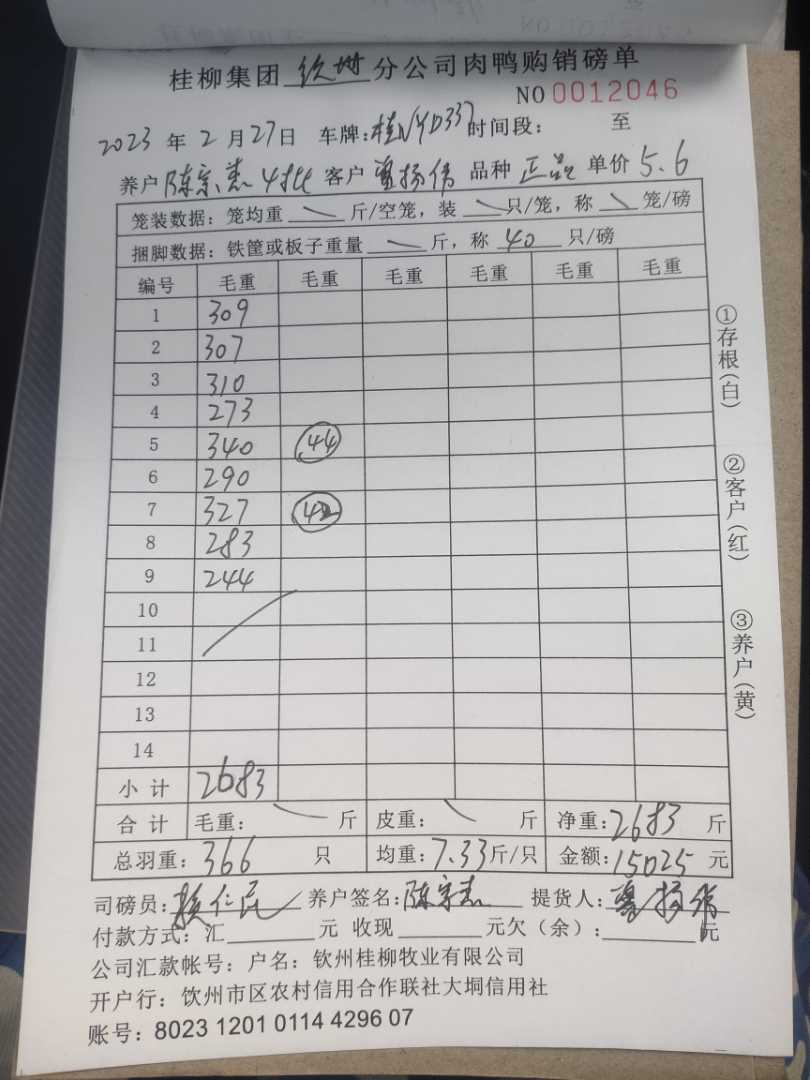 桂柳集团 钦州 分公司肉鸭购销磅单
NO 0012046
2023 年 2 月 27 日 车牌: 桂NYD337 时间段: 至
养户 陈宗志 4批 客户 扬伟 品种 正品 单价 5.6
笼装数据: 笼均重 \ 斤/空笼, 装 \ 只/笼, 称 \ 笼/磅
捆脚数据: 铁筐或板子重量 \ 斤, 称 40 只/磅
编号 毛重 毛重 毛重 毛重 毛重 毛重
1 309
2 307
3 310
4 273
5 340 44
6 290
7 327 42
8 283
9 244
10
11
12
13
14
小 计 2683
合 计 毛重: \ 斤 皮重: \ 斤 净重: 2683 斤
总羽重: 366 只 均重: 7.33 斤/只 金额: 15025 元
司磅员: 仁民 养户签名: 陈宗志 提货人: 扬伟
付款方式: 汇 元 收现 元欠(余): 元
公司汇款帐号: 户名: 钦州桂柳牧业有限公司
开户行: 饮州市区农村信用合作联社大垌信用社
账号: 8023 1201 0114 4296 07
①存根(白)
②客户(红)
③养户(黄)